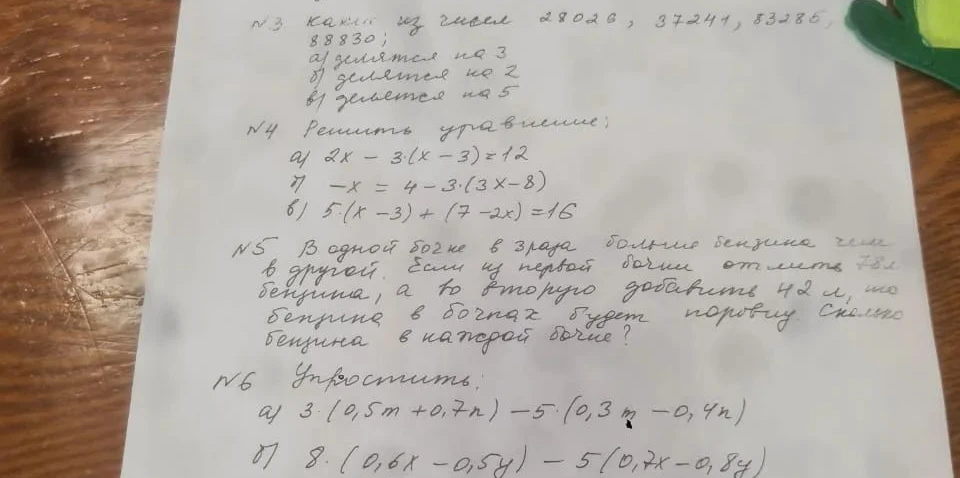 №3. Какие из чисел 28026, 37241, 83285,
88830;
а) делятся на 3
б) делятся на 2
в) делятся на 5
№4 Решить уравнение:
а) 2x – 3·(x – 3) = 12
б) –x = 4 – 3·(3x – 8)
в) 5·(x – 3) + (7 – 2x) = 16
№5 В одной бочке в 3 раза больше бензина чем
в другой. Если из первой бочки отлить 78л
бензина, а во вторую добавить 42 л, то
бензина в бочках будет поровну. Сколько
бензина в каждой бочке?
№6 Упростить:
а) 3·(0,5m + 0,7n) – 5·(0,3m – 0,4n)
б) 8·(0,6x – 0,5y) – 5(0,7x – 0,8y)